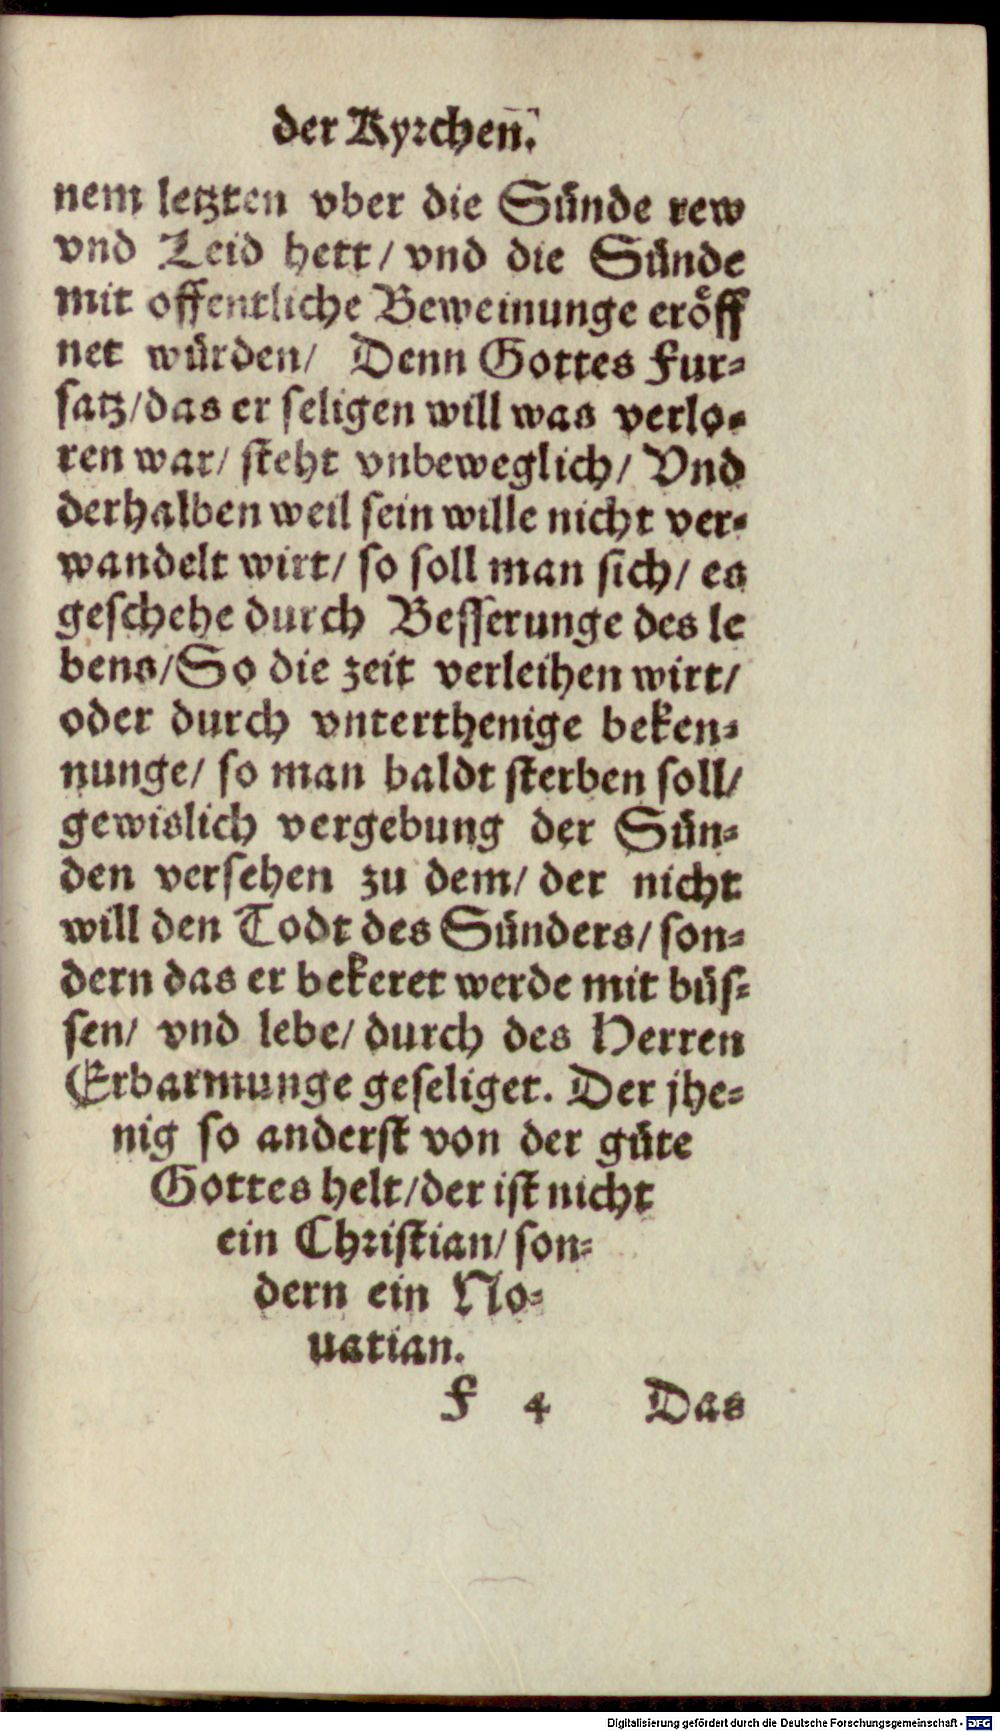 der Kyrchenn̄.
nem letzten vber die Sünde rew
vnd Leid hett/ vnd die Sünde
mit offentliche Beweinunge eröff
net würden/ Denn Gottes Fur-
satz/das er seligen will was verlo-
ren war/ steht vnbeweglich/ Vnd
derhalben weil sein wille nicht ver-
wandelt wirt/ so soll man sich/ es
geschehe durch Besserunge des le
bens/So die zeit verleihen wirt/
oder durch vnterthenige beken-
nunge/ so man baldt sterben soll/
gewislich vergebung der Sün-
den versehen zu dem/ der nicht
will den Todt des Sünders/ son-
dern das er bekeret werde mit büs-
sen/ vnd lebe/ durch des Herren
Erbarmunge geseliget. Der jhe-
nig so anderst von der güte
Gottes helt/der ist nicht
ein Christian/ son-
dern ein No-
uatian.
F 4 Das
Digitalisierung gefördert durch die Deutsche Forschungsgemeinschaft - DFG